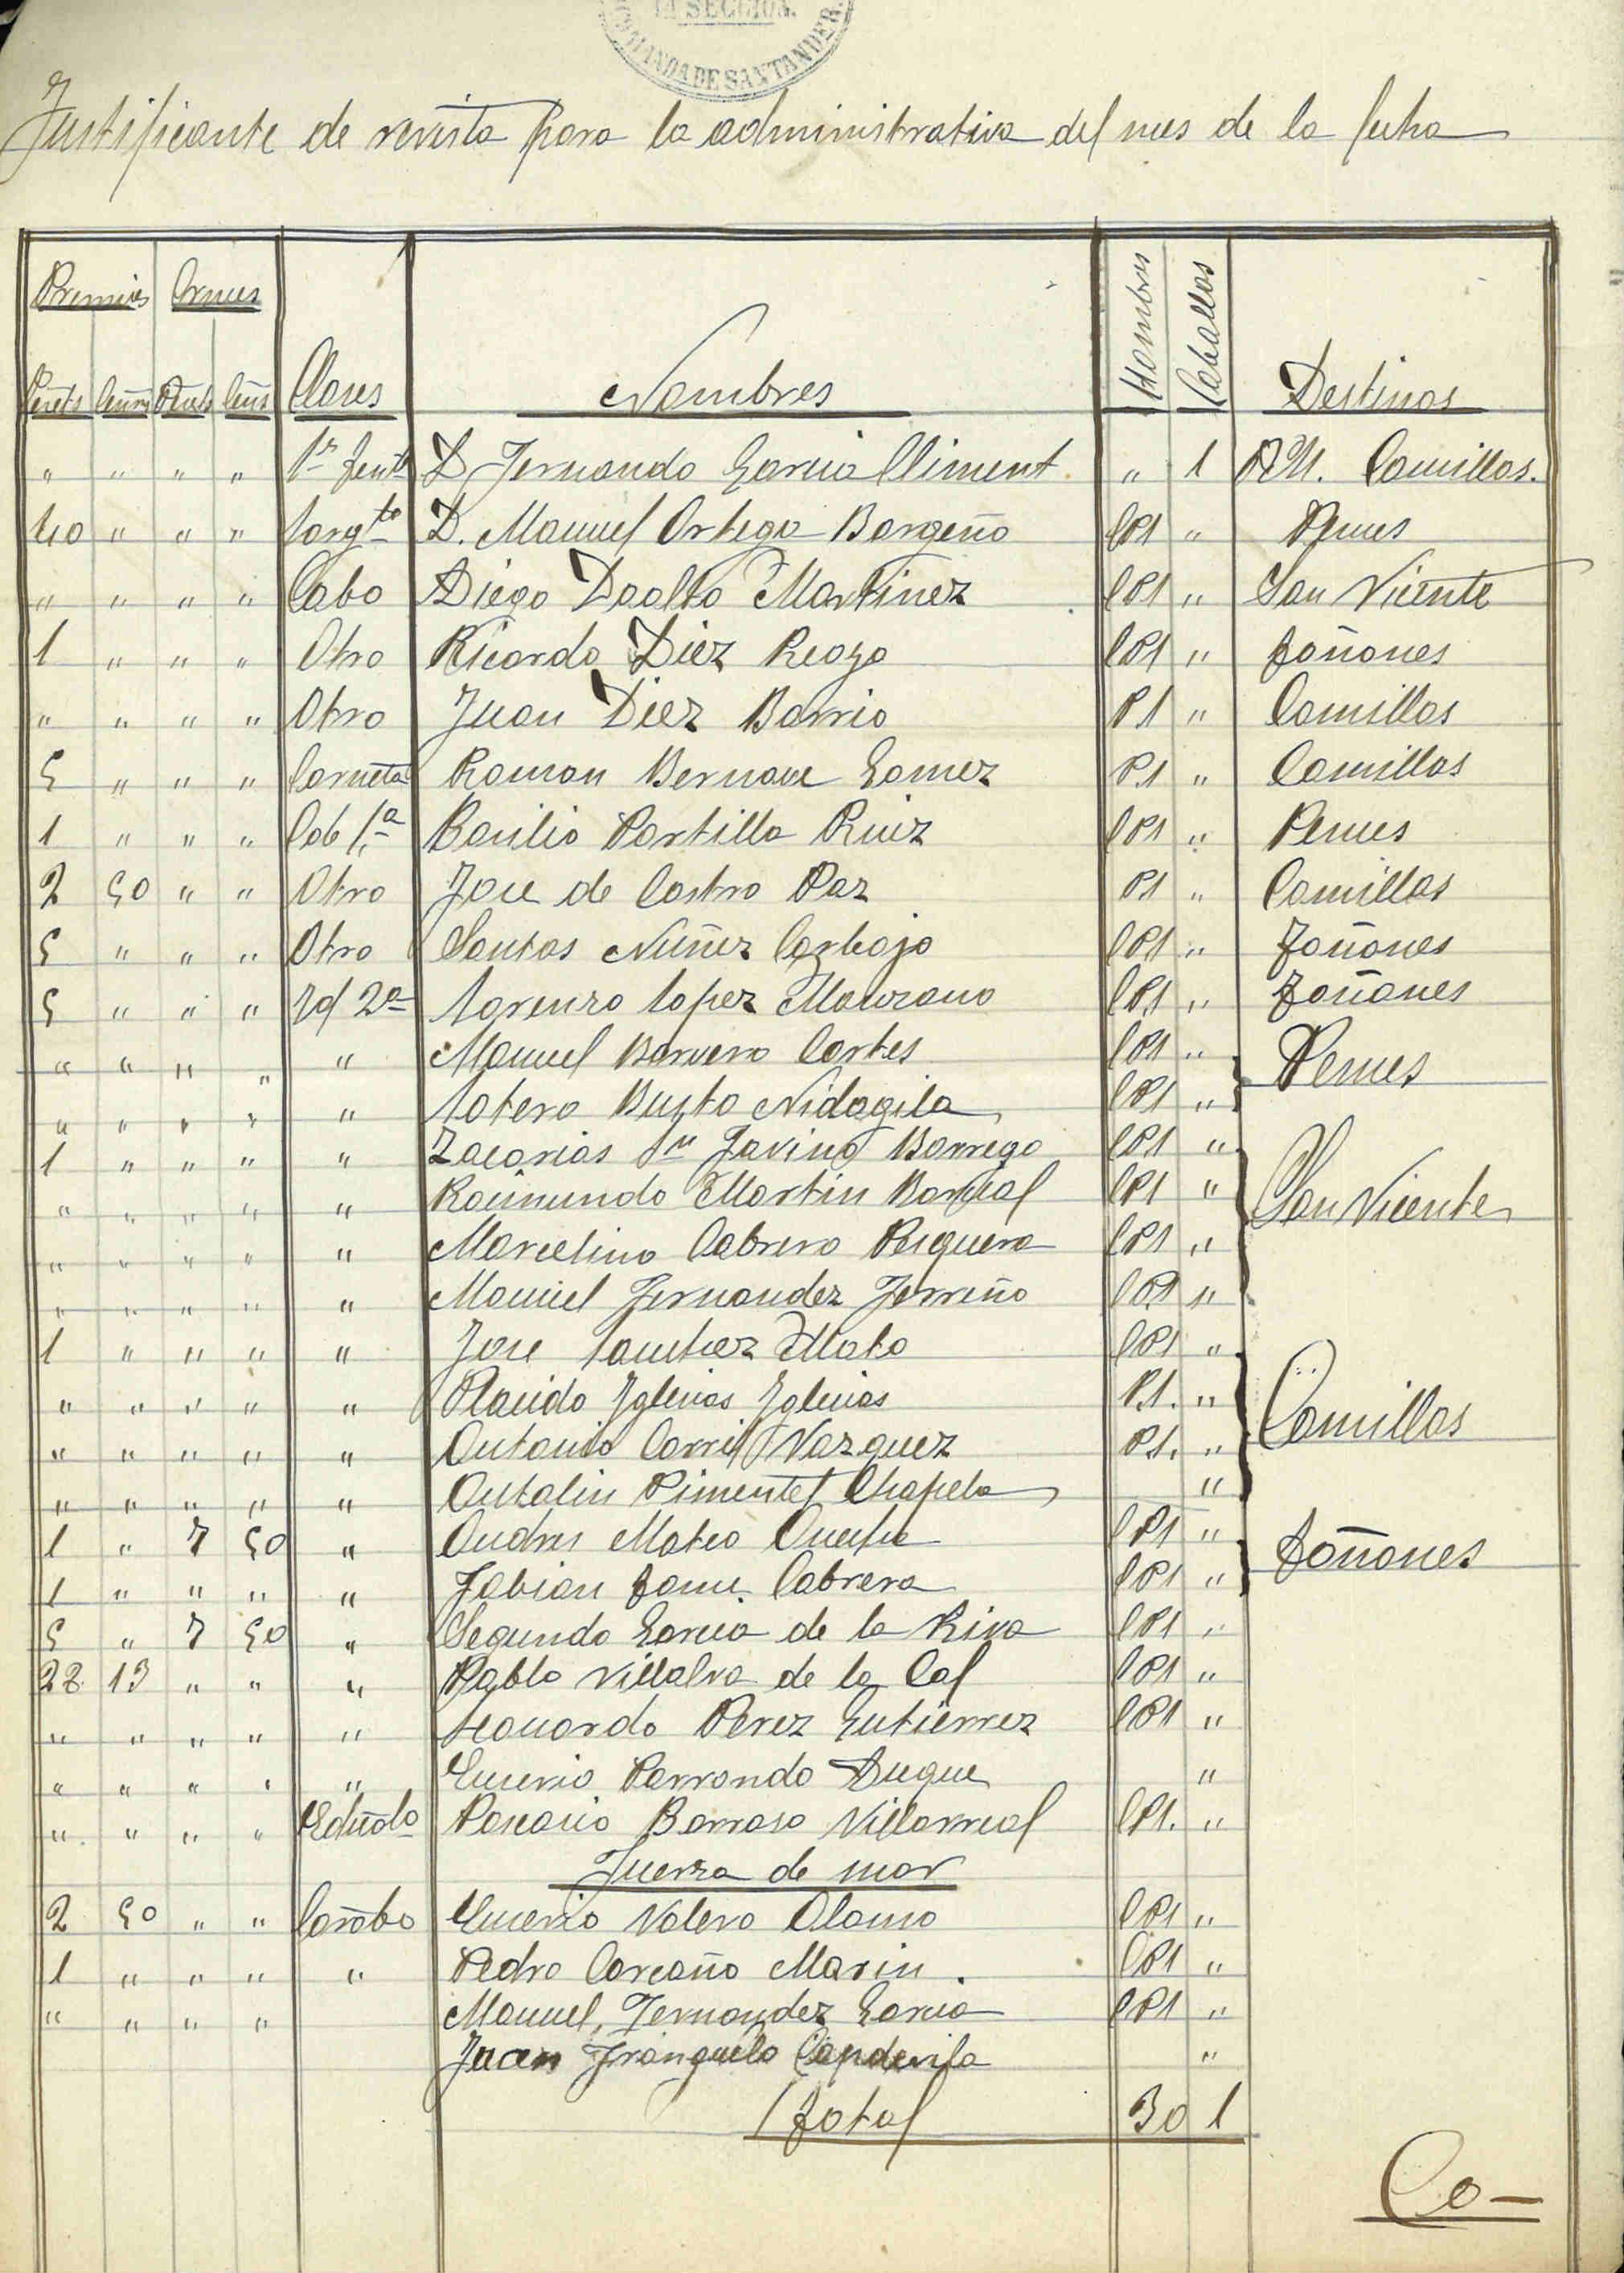 1ª SECCIÓN.
COMANDA DE SANTANDER
Justificante de revista para la administrativa del mes de la fecha
Premios Cruces
Pesets Cents Pesets Cents Clases Nombres Hombres Caballos Destinos
" " " " 1er Tente D Fernando Garcia Climent " 1 P.M. Comillas.
40 " " " Sargto D. Manuel Ortega Bargeño CP1 " Pemes
" " " " Cabo Diego Doalto Martinez CP1 " San Vicente
1 " " " Otro Ricardo Diez Reozo CP1 " Toñanes
" " " " Otro Juan Diez Barrio P1 " Comillas
5 " " " Corneta Roman Bernaue Gomez P1 " Comillas
1 " " " Cab 1ª Basilio Portilla Ruiz CP1 " Pemes
2 50 " " Otro Jose de Castro Paz P1 " Comillas
5 " " " Otro Santos Nuñez Carbajo CP1 " Toñanes
5 " " " Id 2ª Lorenzo Lopez Manzano CP1 " Toñanes
" " " " " Manuel Barvero Cortes CP1 " Pemes
" " " " " Sotero Busto Nidagila CP1 "
1 " " " " Zacarias Sn Favino Borrego CP1 "
" " " " " Raimundo Martin Barcial CP1 " San Vicente
" " " " " Marcelino Cabrero Pesquera CP1 "
" " " " " Manuel Fernandez Ferreño CP1 "
1 " " " " Jose Sanchez Mato CP1 "
" " " " " Placido Yglesias Yglesias P1. "
" " " " " Antonio Carril Vazquez P1. " Comillas
" " " " " Antolin Pimentel Chapela "
1 " 7 50 " Andres Mateo CP1 "
1 " " " " Fabian Tome Cabrera CP1 " Toñanes
5 " 7 50 " Segundo Garcia de la Riva CP1 "
28 13 " " " Pablo Villalva de la Cal CP1 "
" " " " " Leonardo Perez Gutierrez CP1 "
" " " " " Eusevio Parrondo Duque "
" " " " Educdo Pascasio Barroso Villarreal CP1. "
Fuerza de mar
2 50 " " Carabo Eusevio Valero Alamo CP1 "
1 " " " " Pedro Carcaño Marin. CP1 "
" " " " Manuel Fernandez Garcia CP1 "
Juan Franquelo Capdevila "
Total 30 1
Co-